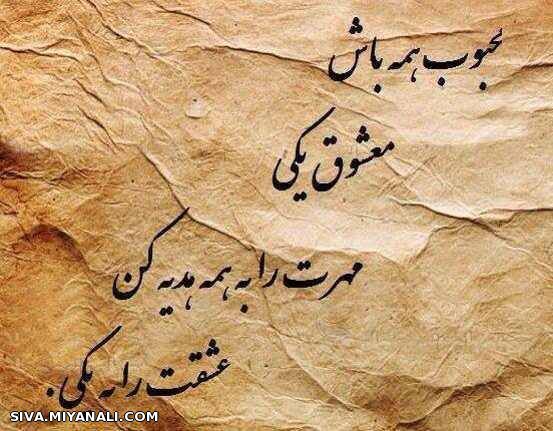 محبوب همه باش
معشوق یکی
مهرت را به همه هدیه کن
عشقت را به یکی.
SIVA.MIYANALI.COM